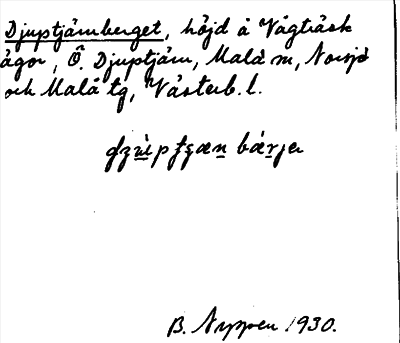 Djuptjärnberget, höjd å Vägträsk
ägor, Ö. Djuptjärn, Malå sn, Norsjö
och Malå tg, Västerb. l.
B. Nyppen 1930.